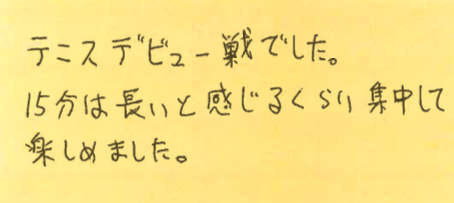 テニスデビュー戦でした。
15分は長いと感じるくらい集中して
楽しめました。